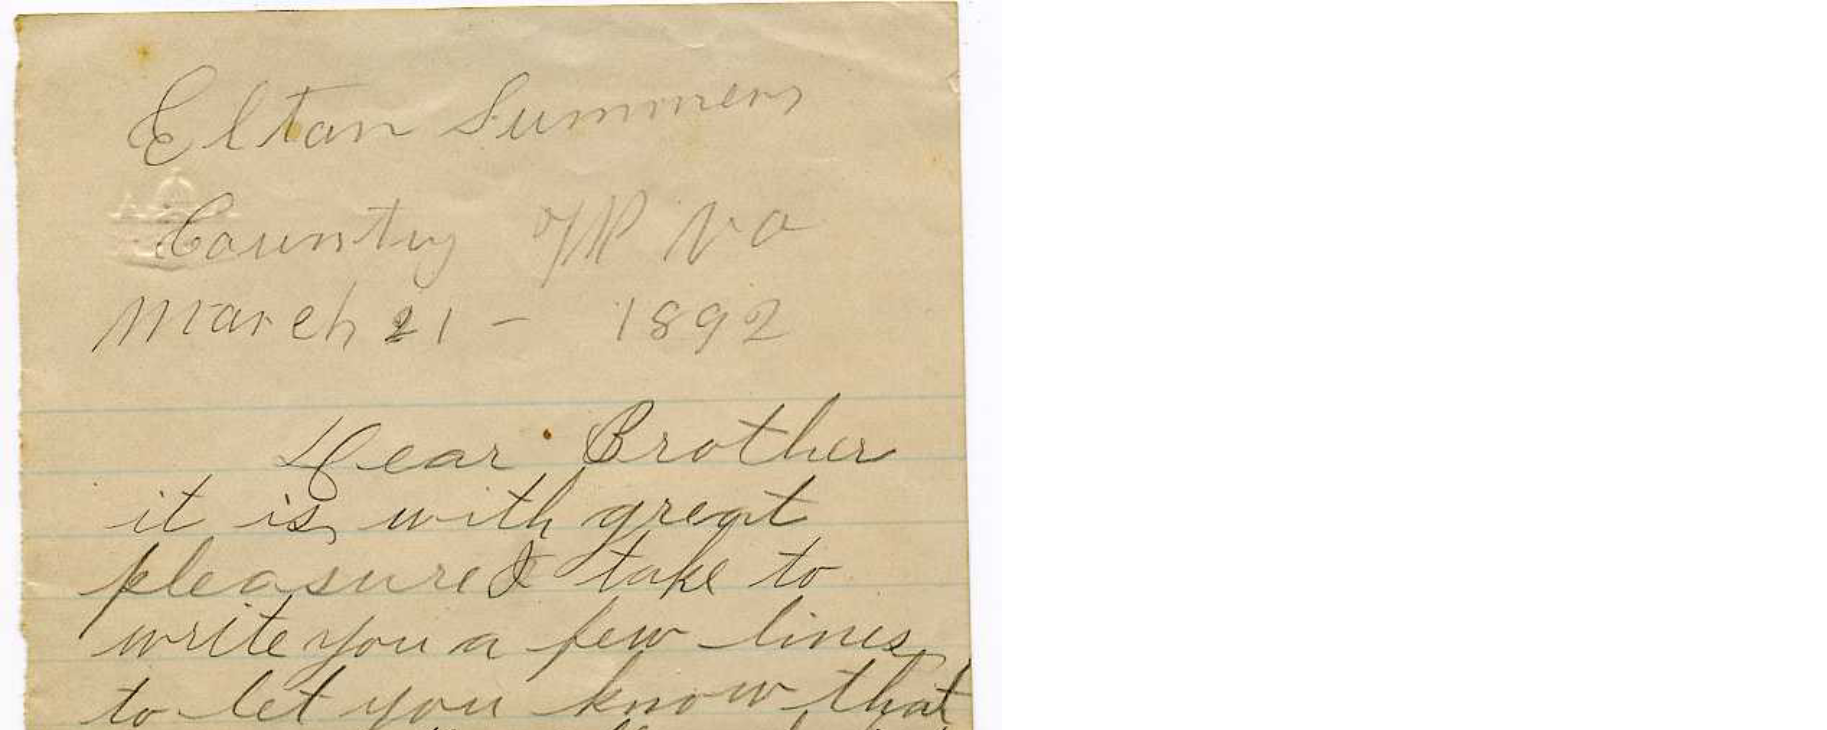 Eltan Summers
Country W Va
March 21 - 1892
Dear Brother
it is with great
pleasure I take to
write you a few lines
to let you know that